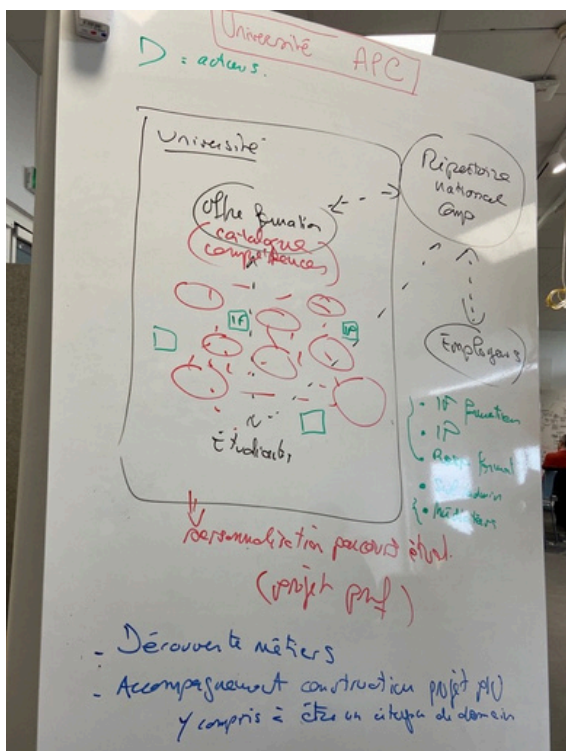 Université APC
D : acteurs.
Université
Offre formation
catalogue
compétences
Répertoire
national
Comp
IF
IP
Employeurs
Étudiants
• IF formation
• IP
•
•
•
personnalisation parcours étud.
(projet prof)
- Découverte métiers
- Accompagnement construction projet
y compris à être un citoyen de demain